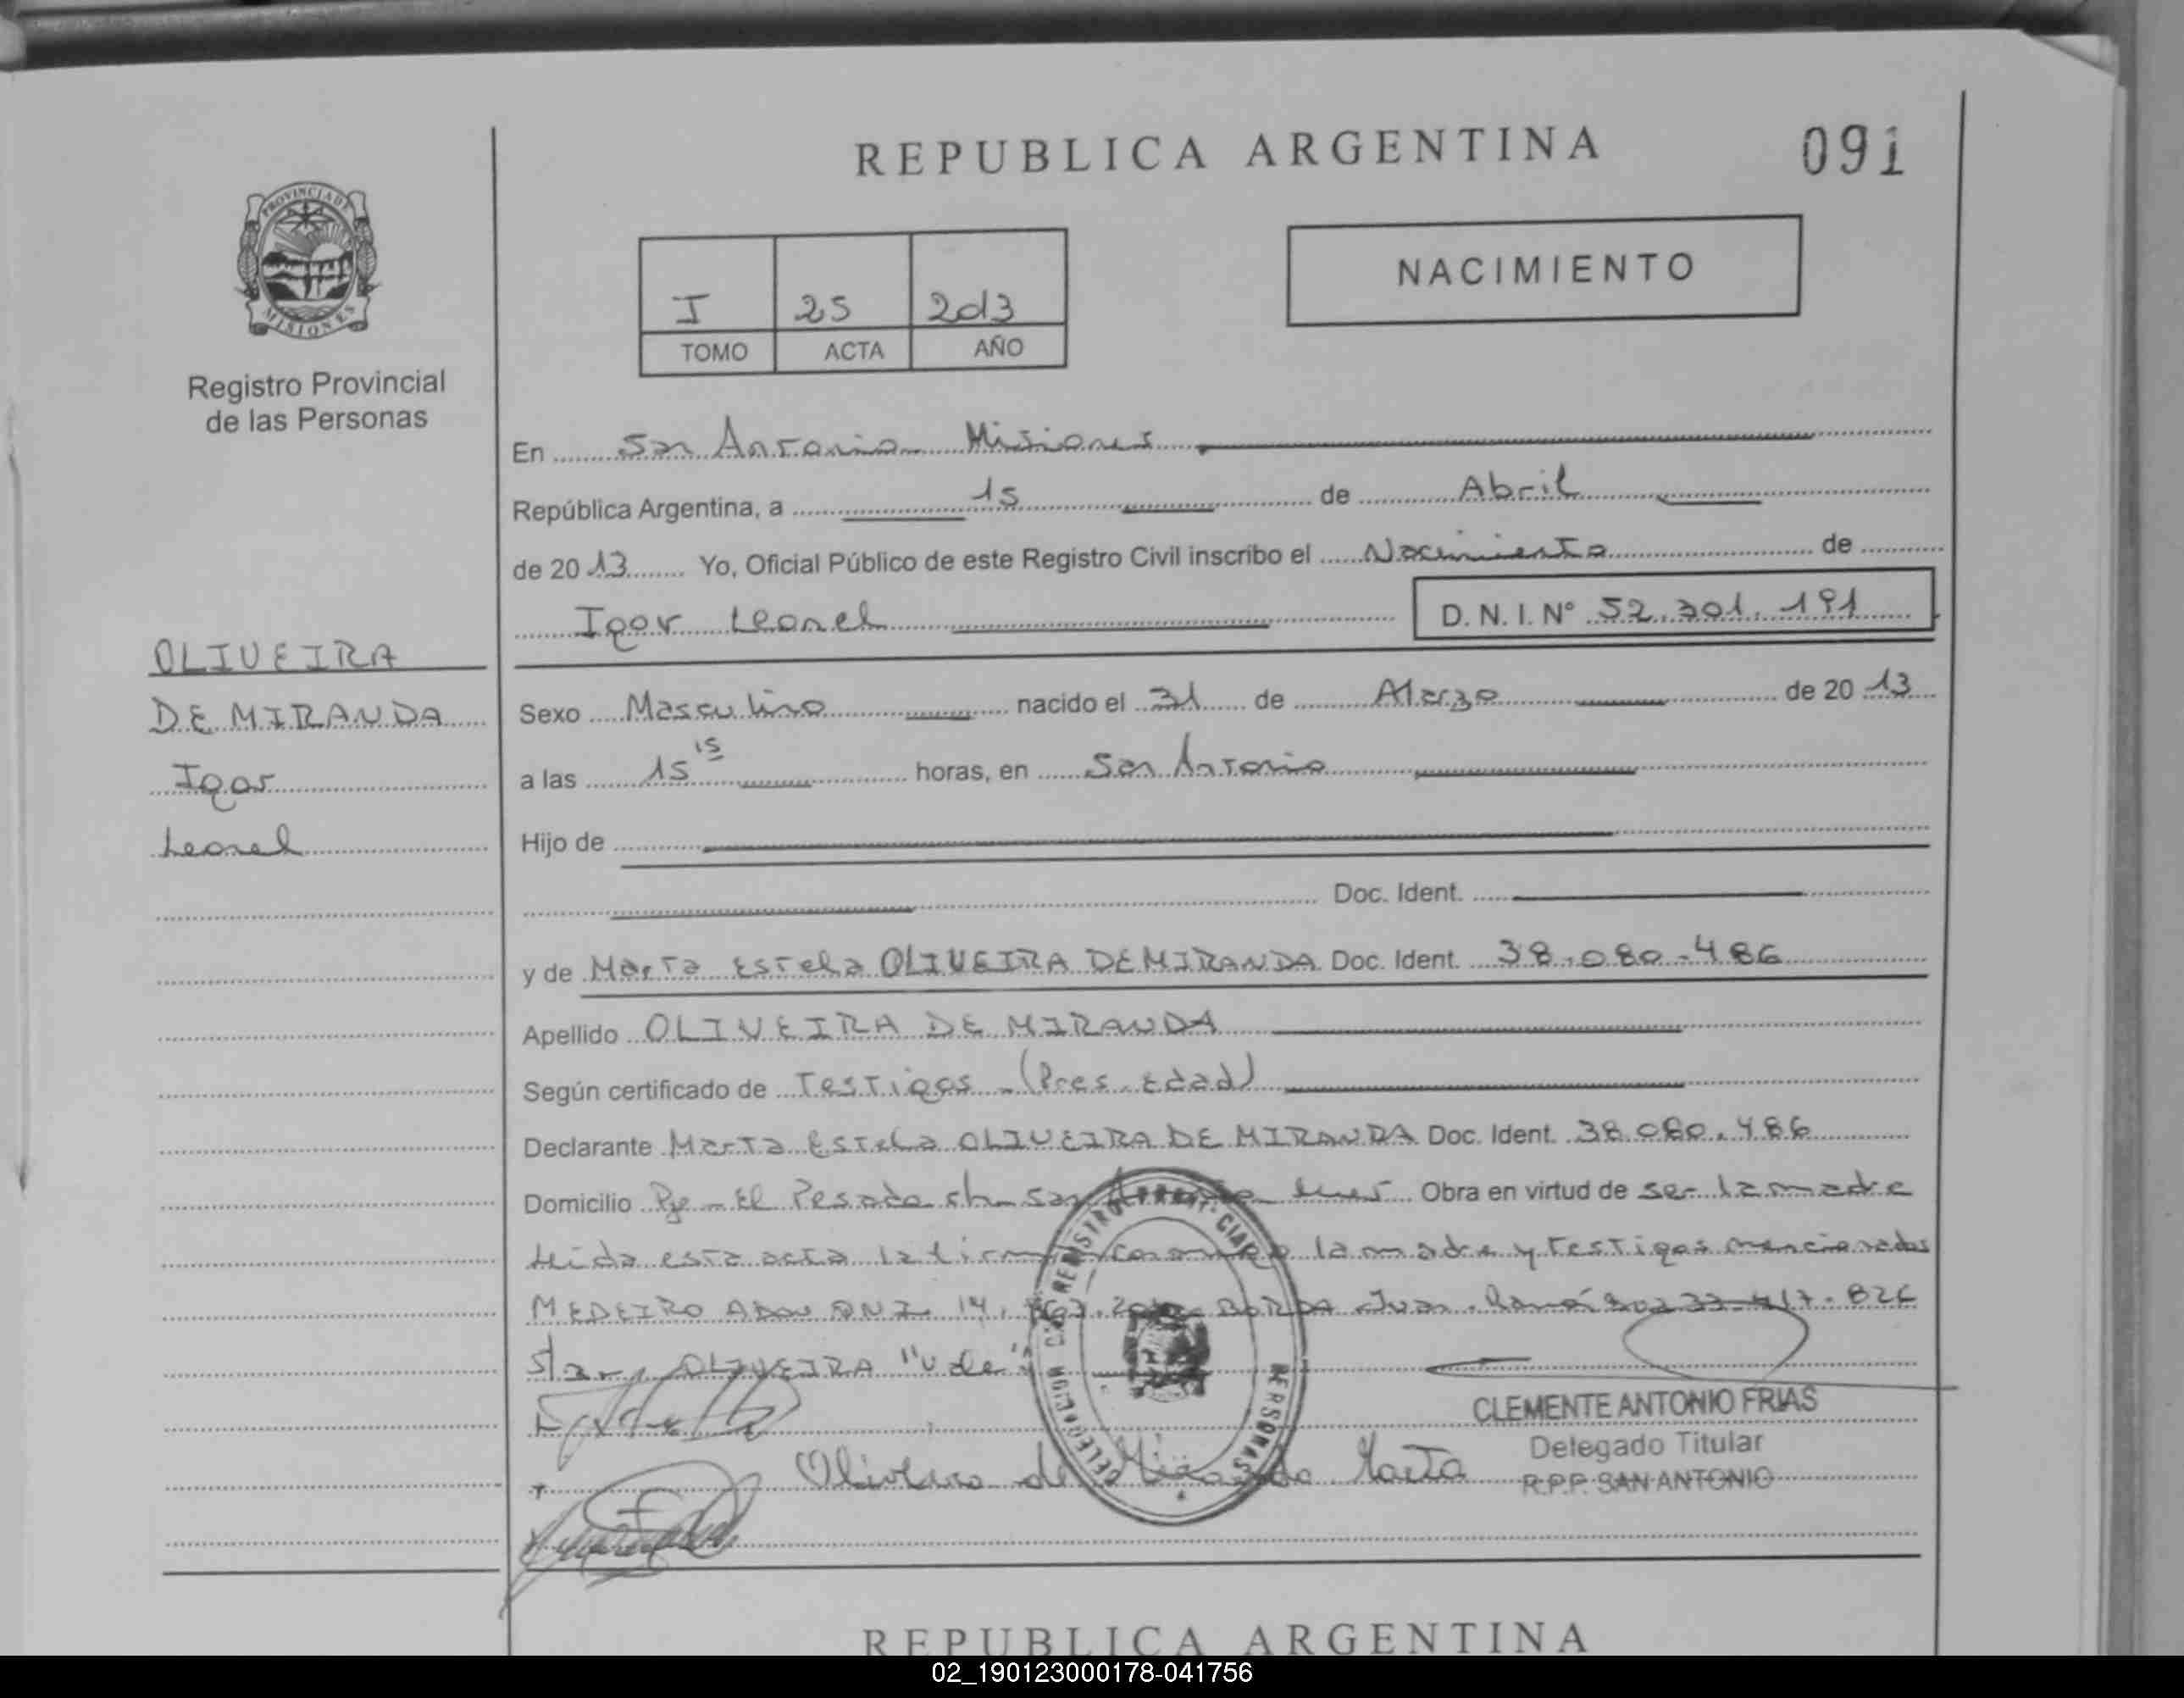 REPUBLICA ARGENTINA
091
PROVINCIA DE
MISIONES
Registro Provincial
de las Personas
I 25 2013
TOMO ACTA AÑO
NACIMIENTO
En San Antonio Misiones
República Argentina, a 15 de Abril
de 2013 Yo, Oficial Público de este Registro Civil inscribo el Nacimiento de
Igor Leonel D. N. I. Nº 52.301.191
OLIVEIRA
DE MIRANDA
Igor
Leonel
Sexo Masculino nacido el 31 de Marzo de 2013
a las 15 15 horas, en San Antonio
Hijo de
Doc. Ident.
y de Marta Estela OLIVEIRA DE MIRANDA Doc. Ident. 38.080.486
Apellido OLIVEIRA DE MIRANDA
Según certificado de Testigos - (Pres. Edad)
Declarante Marta Estela OLIVEIRA DE MIRANDA Doc. Ident. 38.080.486
Domicilio Pje - El Pesado San Obra en virtud de ser la madre
Leida esta acta la firman la madre y testigos mencionados
MEDEIRO DNI 14. BORDA Juan Ramón
OLIVEIRA "Vale"
CLEMENTE ANTONIO FRIAS
Delegado Titular
R.P.P. SAN ANTONIO
Oliveira de Miranda Marta
REPUBLICA ARGENTINA
02_190123000178-041756